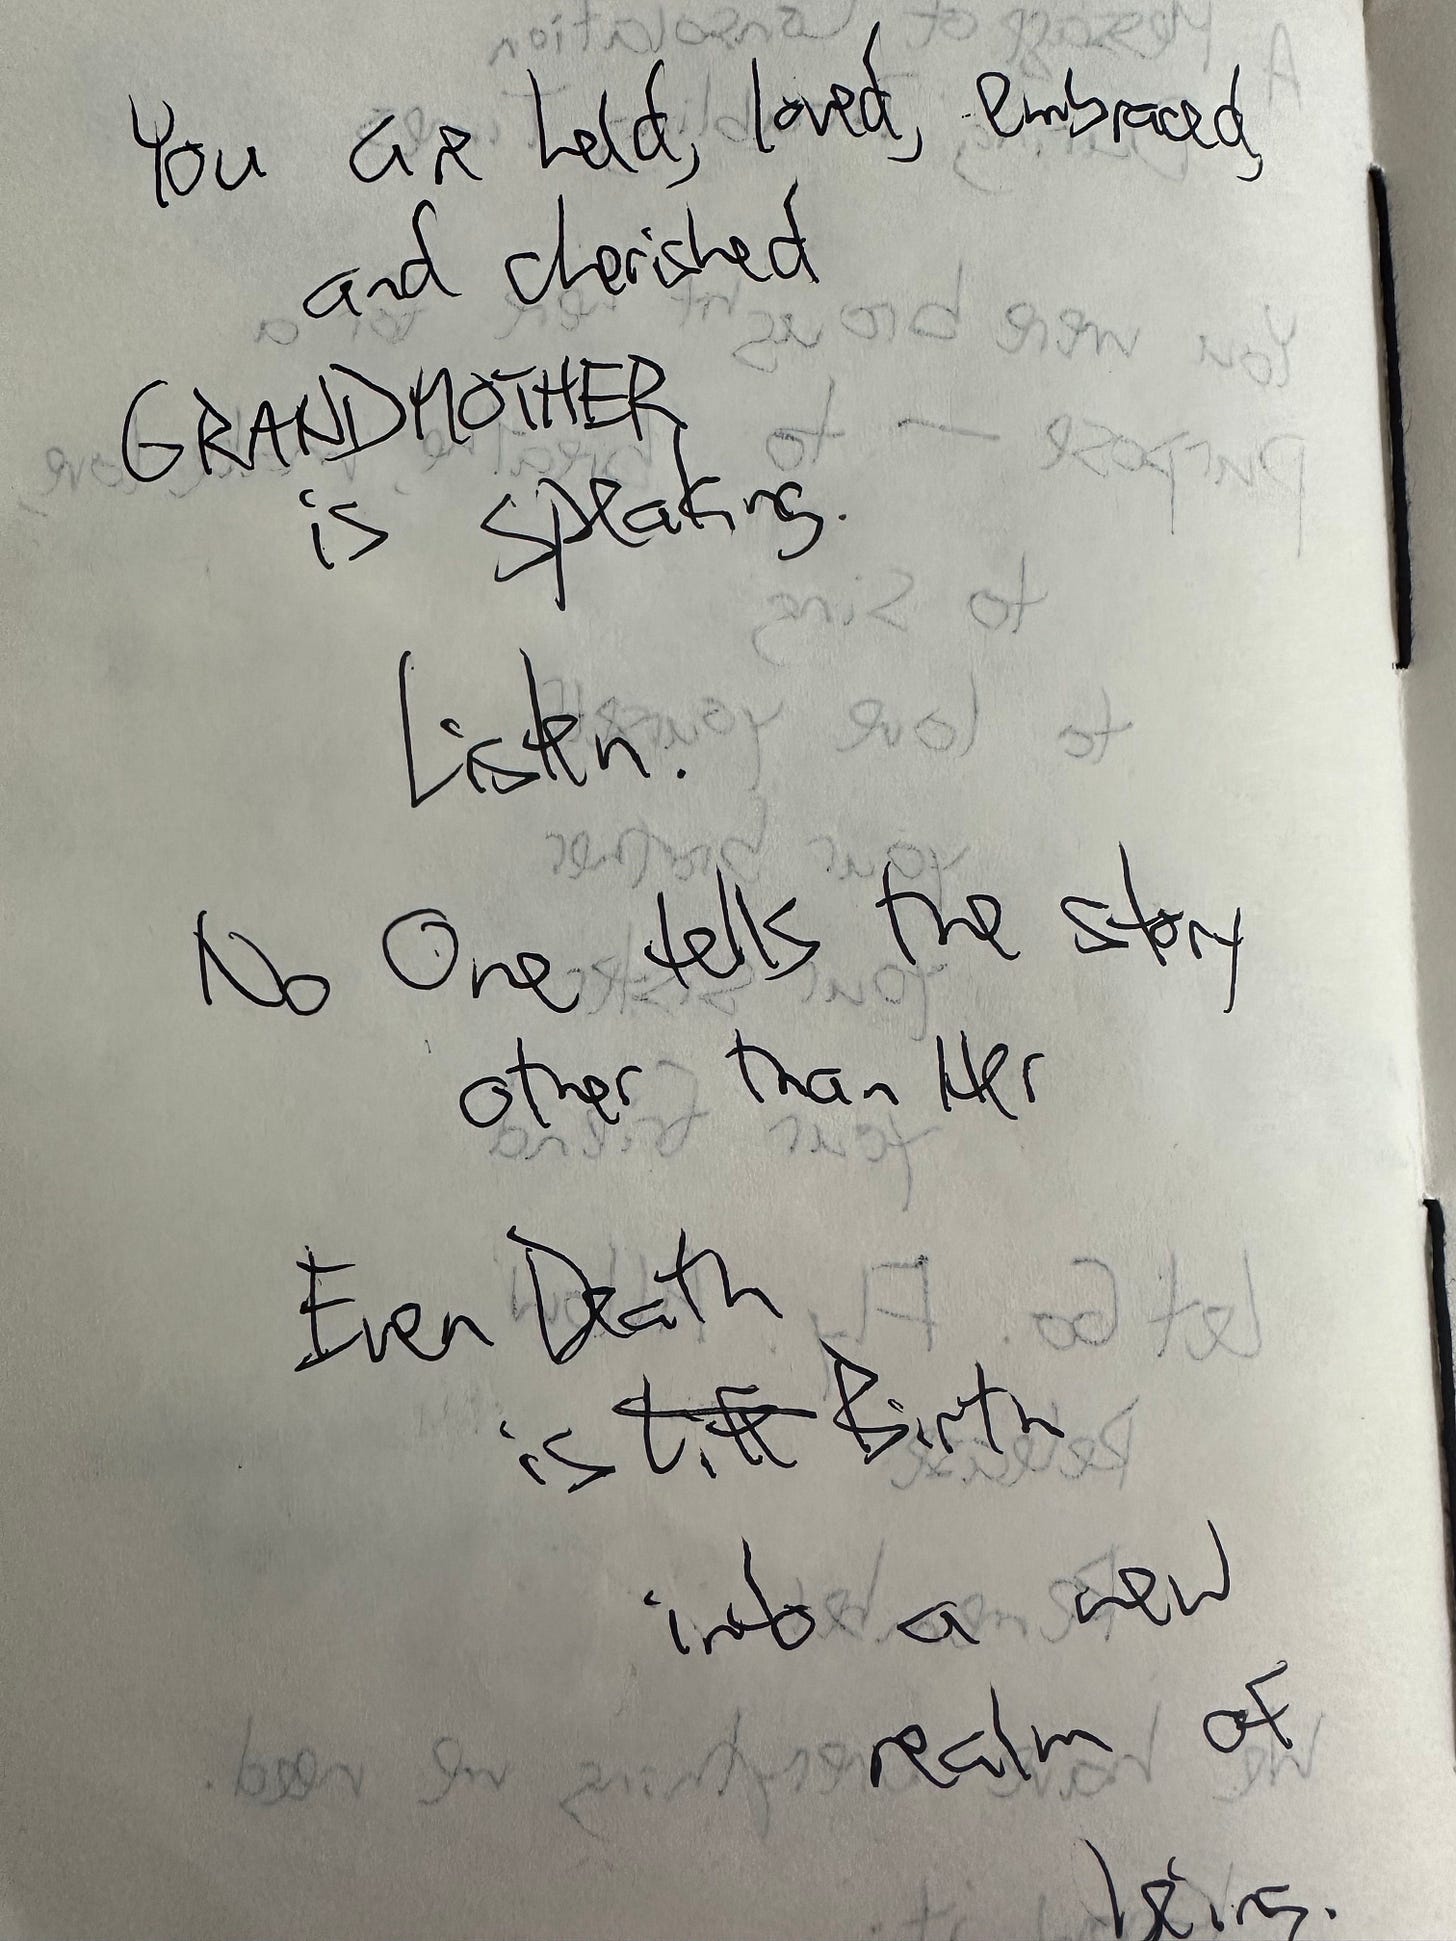 You are held, loved, embraced,
and cherished
GRANDMOTHER
is speaking.
Listen.
No One tells the story
other than Her
Even Death
is Life Birth
into a new
realm of
being.